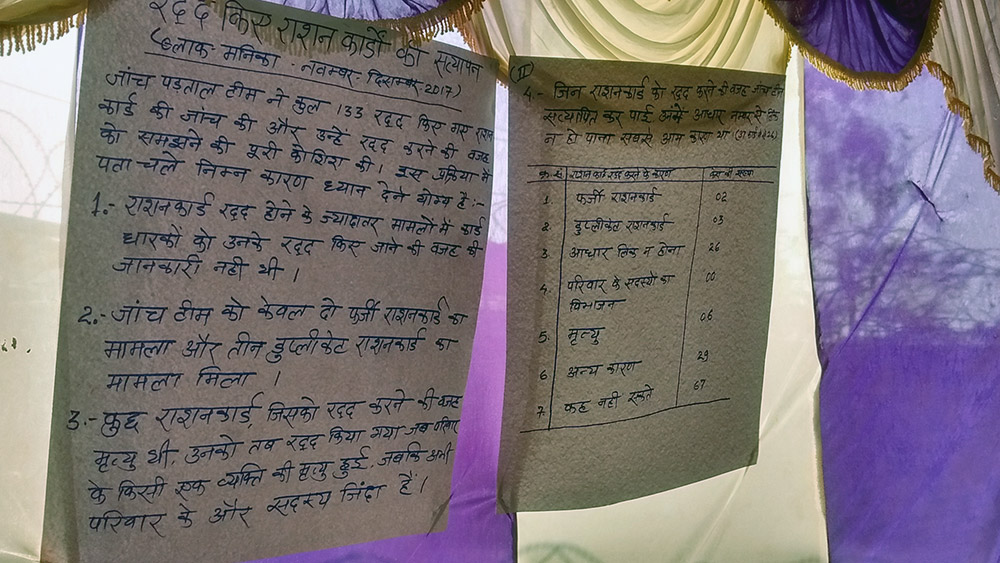 रद्द किए राशन कार्डों का सत्यापन
(ब्लाक- मनिका - नवम्बर- दिसम्बर 2017)
जांच पड़ताल टीम ने कुल 133 रद्द किए गए राशन
कार्ड की जांच की और उन्हें रद्द करने की वजह
को समझने की पूरी कोशिश की। इस प्रक्रिया में
पता चले निम्न कारण ध्यान देने योग्य है:-
1.- राशनकार्ड रद्द होने के ज्यादातर मामलों में कार्ड
धारकों को उनके रद्द किए जाने की वजह की
जानकारी नही थी।
2.- जांच टीम को केवल दो फर्जी राशनकार्ड का
मामला और तीन डुप्लीकेट राशनकार्ड का
मामला मिला ।
3.- कुछ राशनकार्ड, जिसको रद्द करने की वजह
मृत्यु थी, उनको तब रद्द किया गया जब परिवार
के किसी एक व्यक्ति की मृत्यु हुई, जबकि अभी
परिवार के और सदस्य जिंदा है।
(II)
4.- जिन राशनकार्ड को रद्द करने की वजह जांच टीम
सत्यापित कर पाई उनमें आधार नम्बर से लिंक
न हो पाना सबसे आम कारण था
क्र.सं. राशन कार्ड रद्द करने के कारण केस की संख्या
1. फर्जी राशनकार्ड 02
2. डुप्लीकेट राशनकार्ड 03
3. आधार लिंक न होना 26
4. परिवार के सदस्यों का 00
विभाजन
5. मृत्यु 06
6. अन्य कारण 29
7. कह नही सकते 67